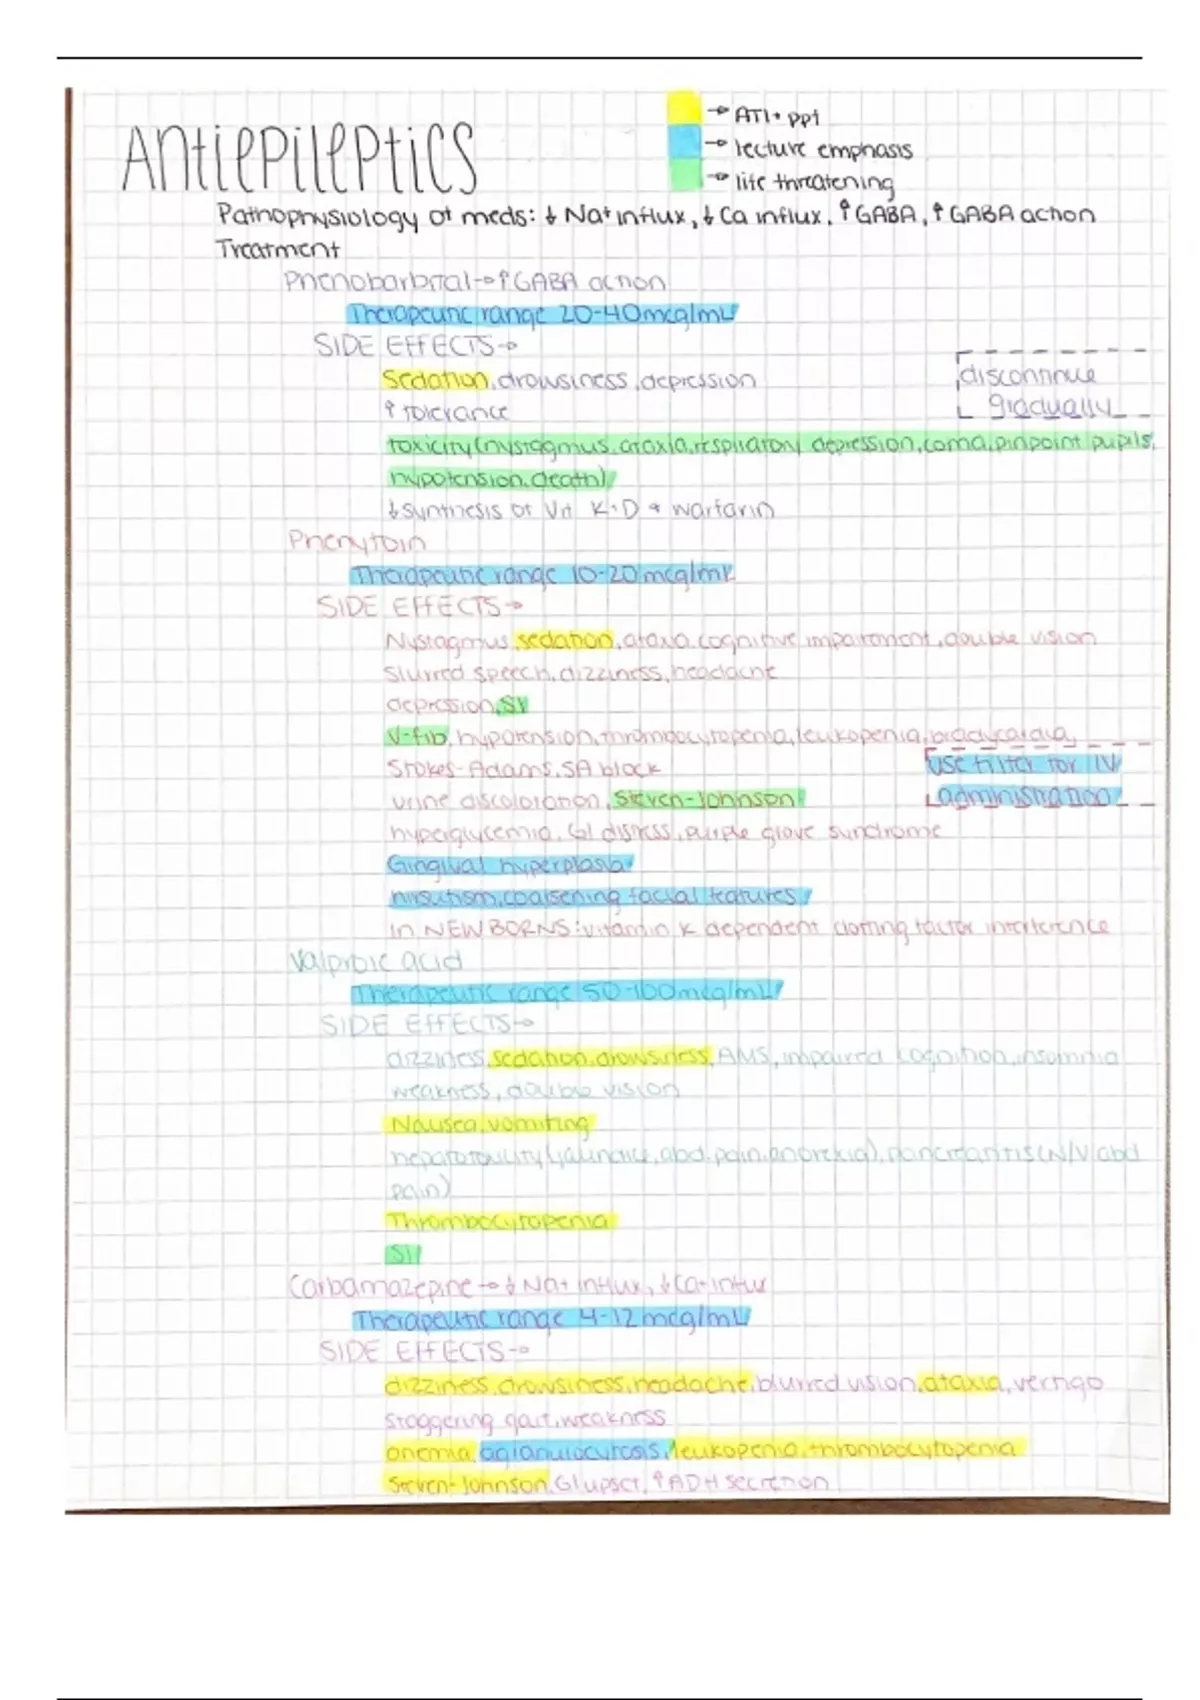 Antiepileptics
→ ATI + ppt
→ lecture emphasis
→ life threatening
Pathophysiology of meds: ↓ Na+ influx, ↓ Ca influx, ↑ GABA, ↑ GABA action
Treatment
Phenobarbital → ↑ GABA action
Therapeutic range 20-40mcg/mL
SIDE EFFECTS →
Sedation, drowsiness, depression
discontinue
gradually
↑ tolerance
toxicity (nystagmus, ataxia, respiratory depression, coma, pinpoint pupils,
hypotension, death)
↓ synthesis of Vit K + D + warfarin
Phenytoin
Therapeutic range 10-20mcg/mL
SIDE EFFECTS →
Nystagmus, sedation, ataxia, cognitive impairment, double vision
slurred speech, dizziness, headache
depression, SI
V-fib, hypotension, thrombocytopenia, leukopenia, bradycardia,
Stokes-Adams, SA block
use filter for IV
administration
urine discoloration, Steven-Johnson
hyperglycemia, GI distress, purple glove syndrome
Gingival hyperplasia
hirsutism, coarsening facial features
in NEWBORNS: vitamin K dependent clotting factor interference
Valproic acid
Therapeutic range 50-100mcg/mL
SIDE EFFECTS →
dizziness, sedation, drowsiness, AMS, impaired cognition, insomnia
weakness, double vision
Nausea, vomiting
hepatotoxicity (jaundice, abd. pain, anorexia), pancreatitis (N/V abd
pain)
Thrombocytopenia
SI
Carbamazepine → ↓ Na+ influx, ↓ Ca+ influx
Therapeutic range 4-12mcg/mL
SIDE EFFECTS →
dizziness, drowsiness, headache, blurred vision, ataxia, vertigo
staggering gait, weakness
anemia, agranulocytosis, leukopenia, thrombocytopenia
Steven-Johnson, GI upset, ↑ ADH secretion